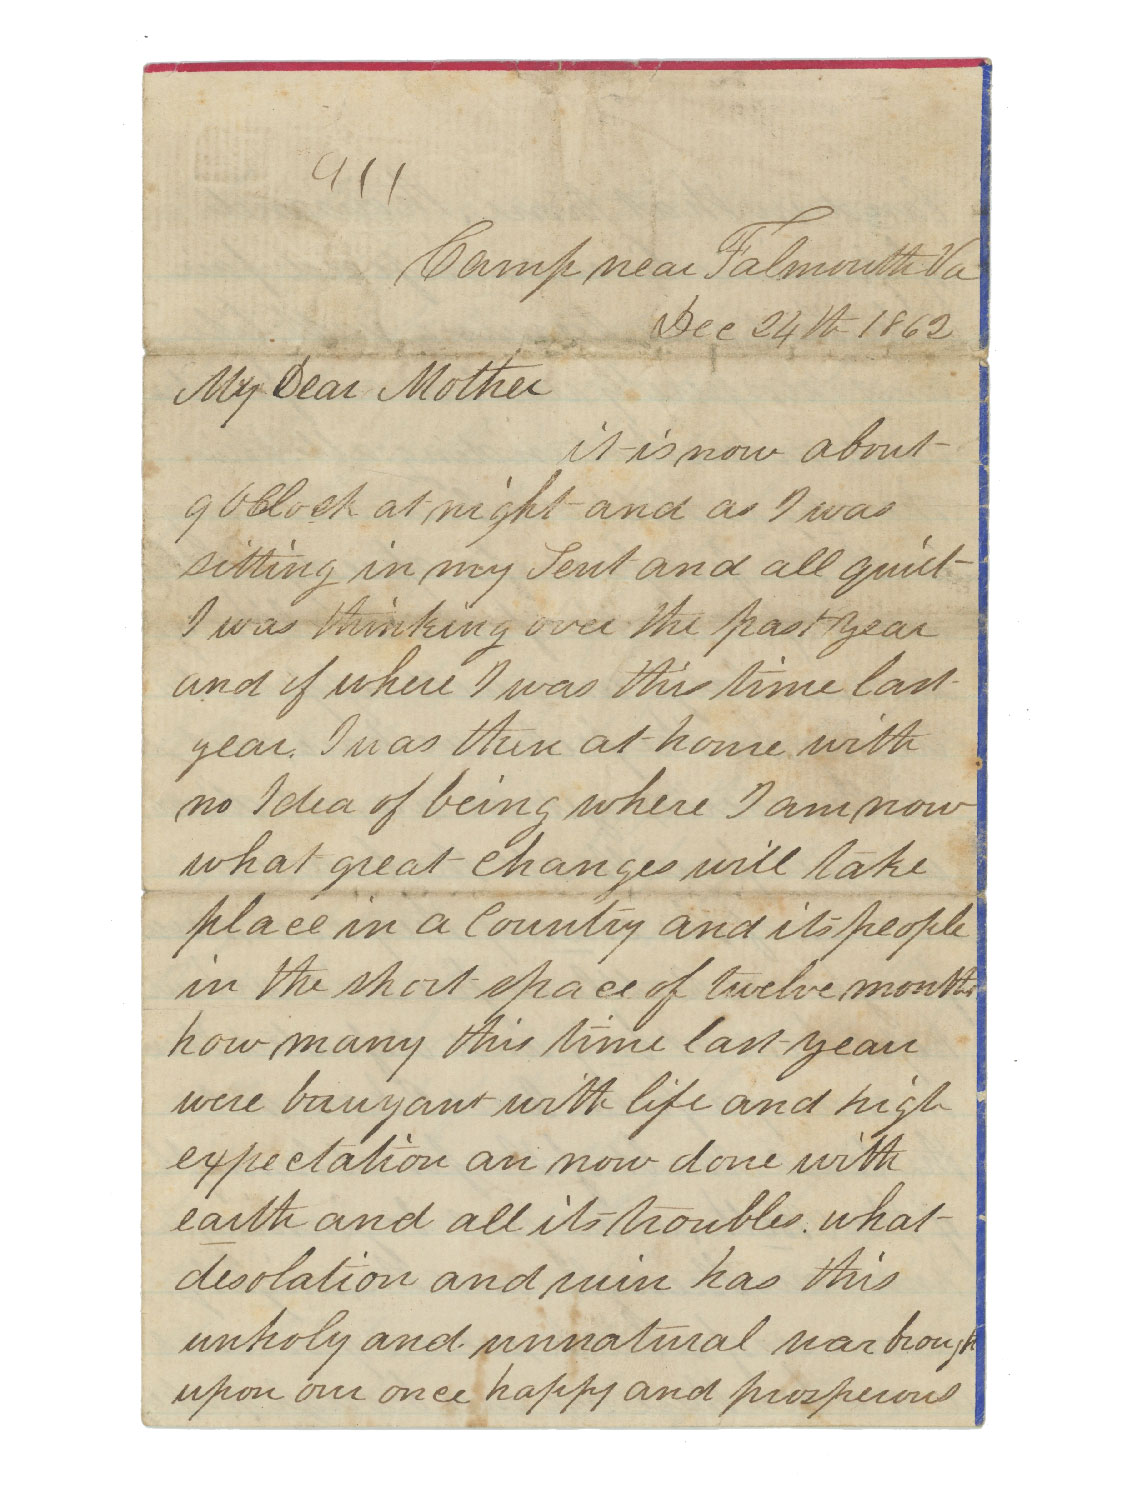 911
Camp near Falmouth Va
Dec 24th 1862
My Dear Mother
it is now about
9 OClock at night and as I was
sitting in my Tent and all quiet
I was thinking over the past year
and of where I was this time last
year. I was then at home with
no Idea of being where I am now
what great changes will take
place in a Country and its people
in the short space of twelve months
how many this time last year
were bauyant with life and high
expectation are now done with
earth and all its troubles. what
desolation and ruin has this
unholy and unnatural war brough
upon our once happy and prosperous